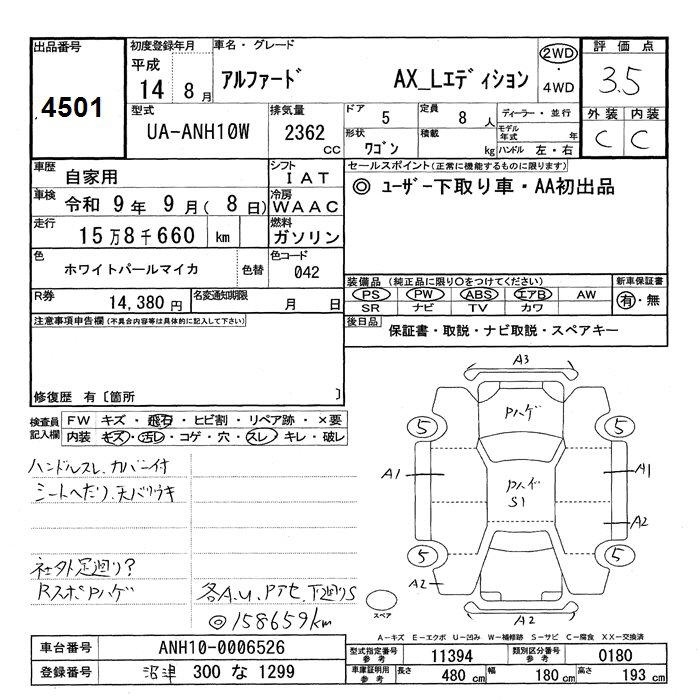 出品番号
4501
初度登録年月
平成
14 8 月
車名・グレード
アルファード AX_Lエディション
2WD
・
4WD
評価点
3.5
外装 内装
C C
型式
UA-ANH10W
排気量
2362 cc
ドア 5
定員 8 人
ディーラー・並行
形状 ワゴン
積載 kg
モデル年式 年
ハンドル 左・右
車歴 自家用
シフト IAT
車検 令和 9 年 9 月( 8 日)
冷房 WAAC
走行 15万8千660 km
燃料 ガソリン
色 ホワイトパールマイカ 色替
色コード 042
R券 14,380 円
名変通知期限 月 日
セールスポイント(正常に機能するものに限ります)
◎ ユーザー下取り車・AA初出品
装備品(純正品に限り○をつけてください)
PS PW ABS エアB AW
SR ナビ TV カワ
新車保証書
有・無
後日品 保証書・取説・ナビ取説・スペアキー
注意事項申告欄(不具合内容等は具体的に記入して下さい)
修復歴 有〔箇所 〕
検査員記入欄
FW キズ・飛石・ヒビ割・リペア跡・×要
内装 キズ・汚レ・コゲ・穴・スレ・キレ・破レ
ハンドルスレ、カバー付
シートヘたり、天バリウキ
社外足廻り?
RスポPハゲ
各A.U.Pアセ、下廻りS
◎158659km
A3
Pハゲ
5 5
A1 A1
Pハゲ
S1
A2
5 5
A2
A2
スペア
A-キズ E-エクボ U-凹み W-補修跡 S-サビ C-腐食 XX-交換済
車台番号 ANH10-0006526
登録番号 沼津 300 な 1299
型式指定番号 参考 11394
類別区分番号 参考 0180
車庫証明用 参考 長さ 480 cm 幅 180 cm 高さ 193 cm